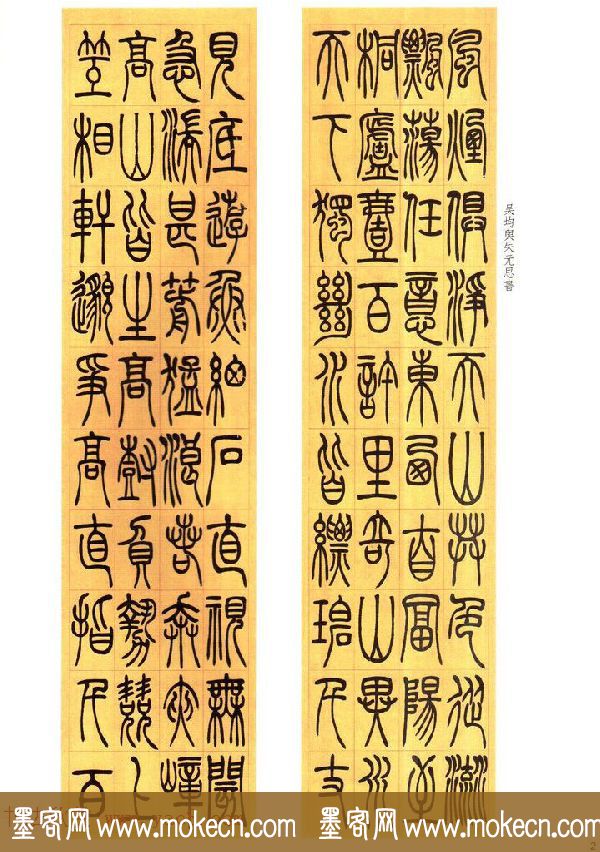 吳均與朱元思書
風煙俱淨天山共色從流
飄蕩任意東西自富陽至
桐廬壹百許里奇山異水
天下獨絕水皆縹碧千丈
見底遊魚細石直視無閡
急湍甚箭猛浪若奔夾嶂
高山皆生高樹負勢競上
互相軒邈爭高直指千百
墨客网 www.mokecn.com 墨客网 www.mokecn.com